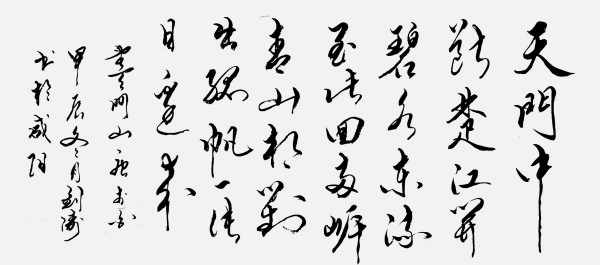 天門中
斷楚江開
碧水東流
至此回兩岸
青山相對
出孤帆一片
日邊來
望天門山
甲辰冬月劉
書於咸陽